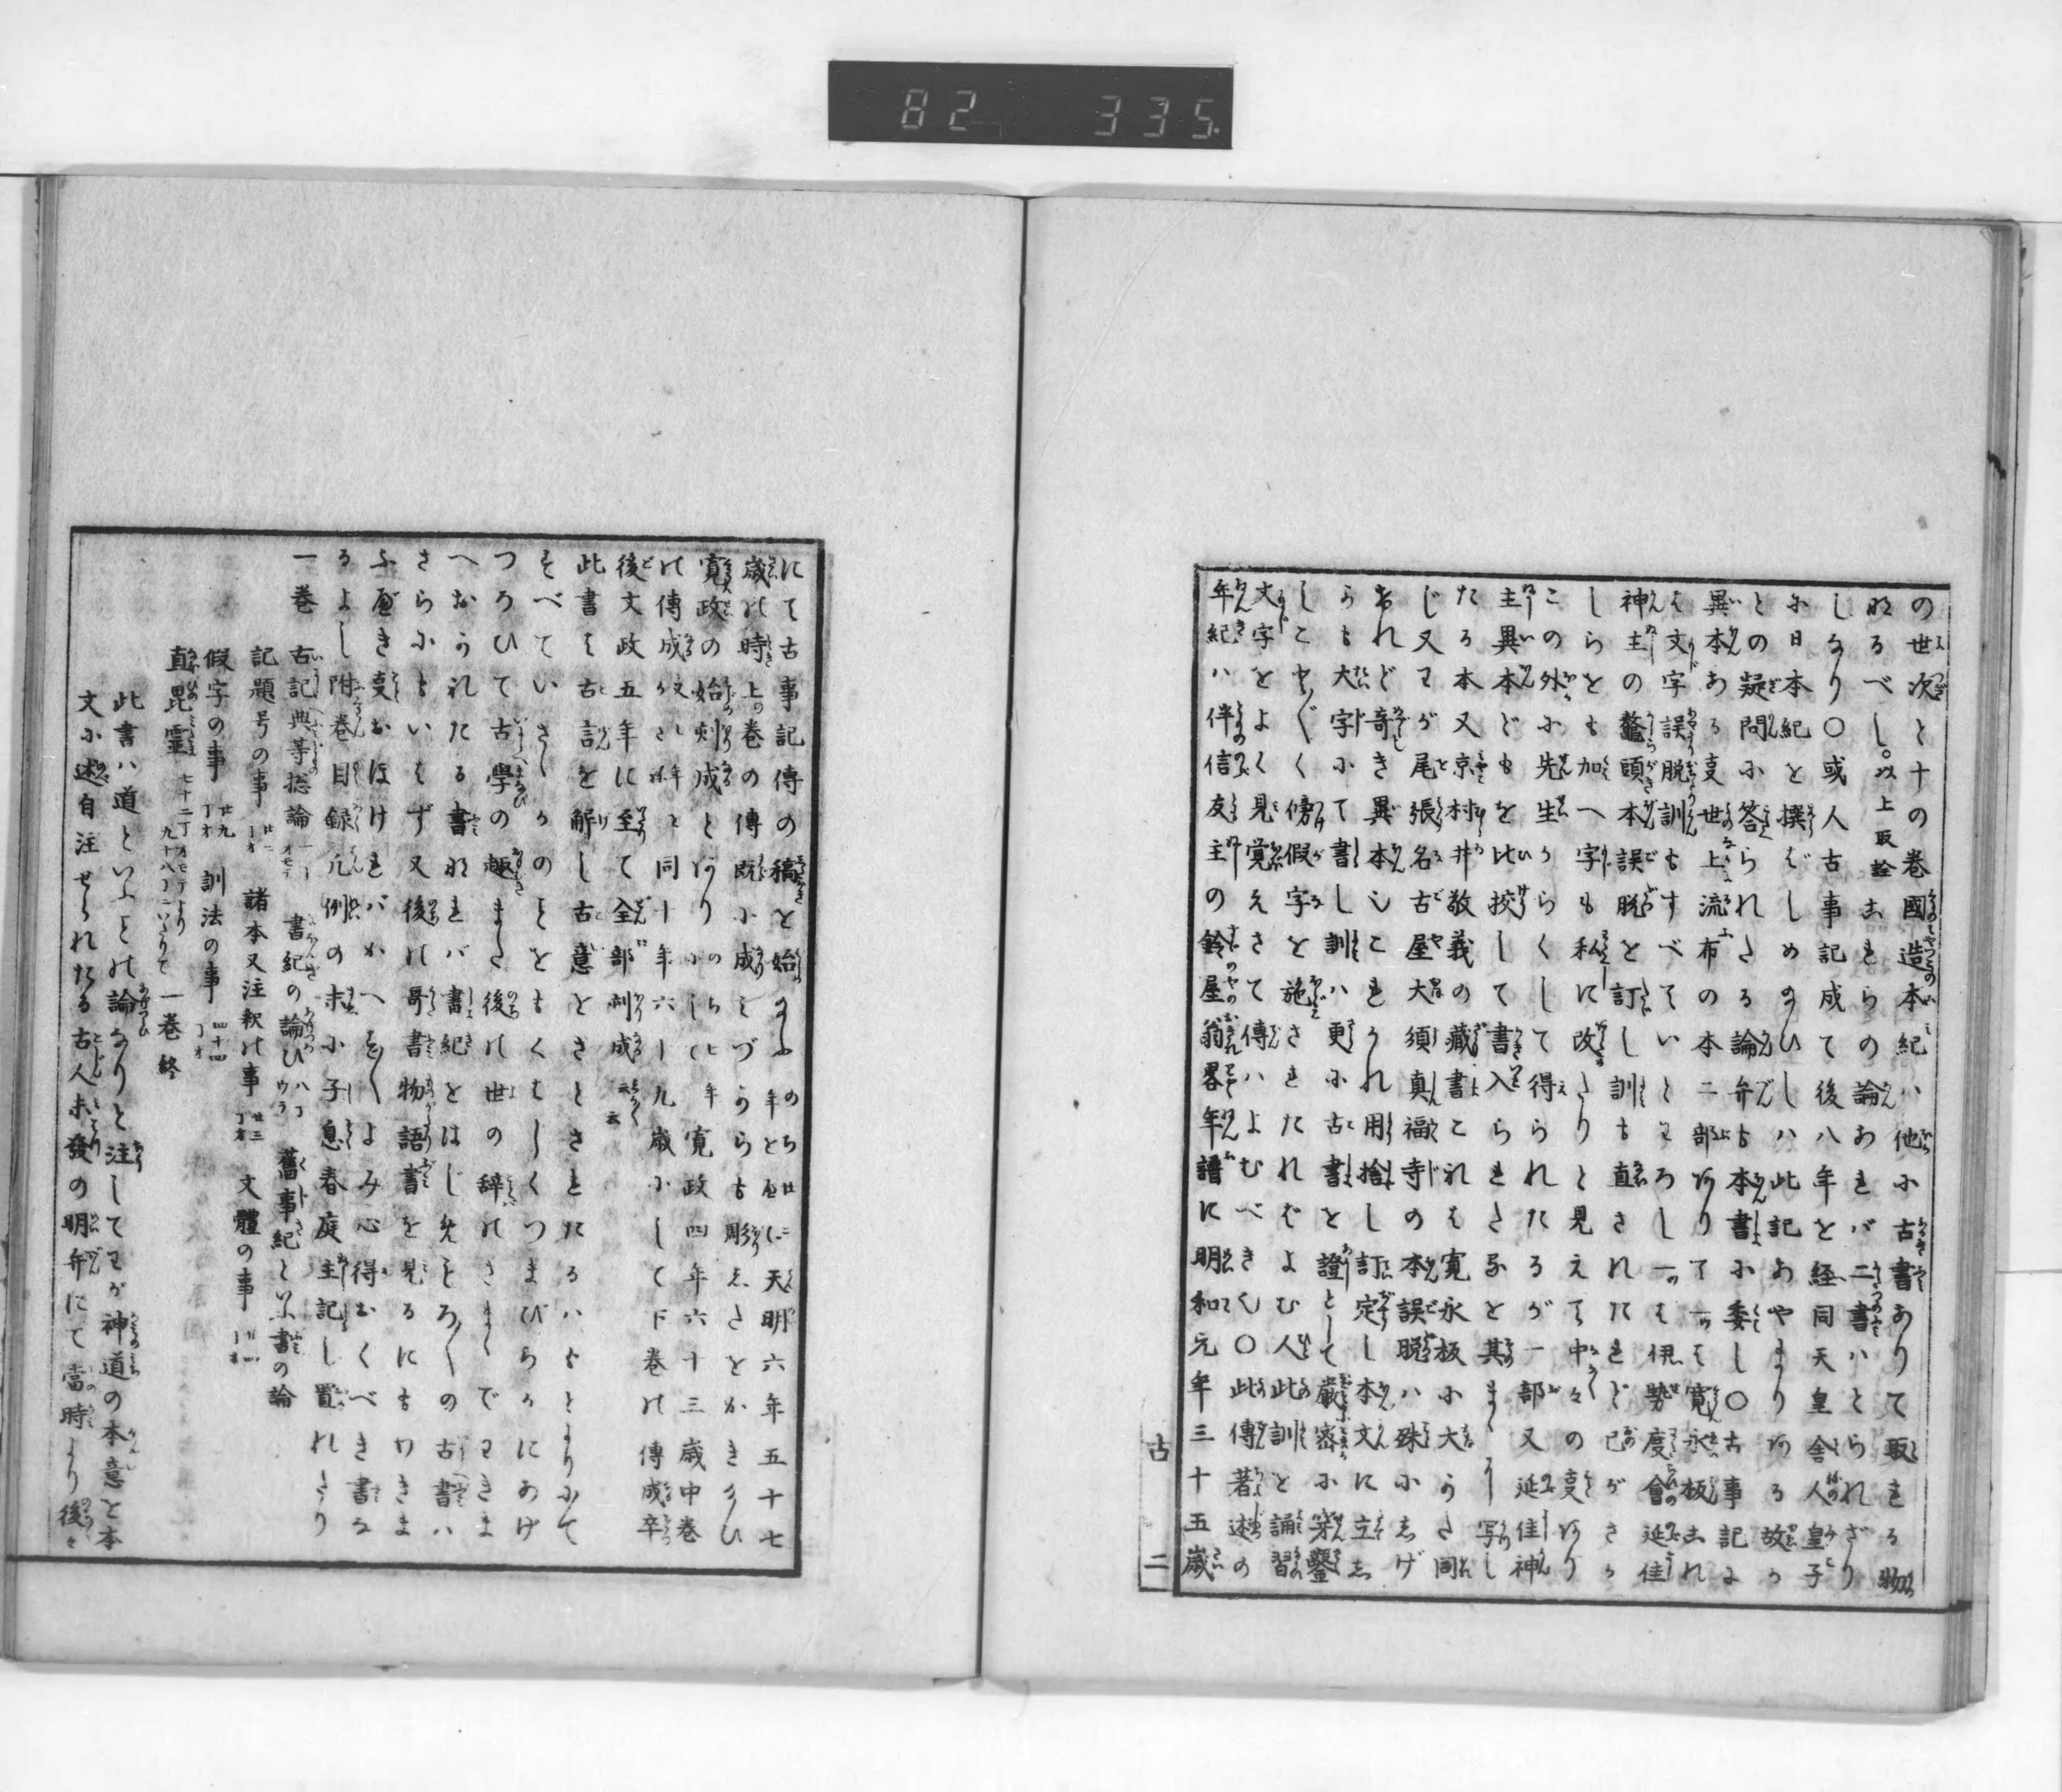 82 335
の世次と十の巻國造本紀ハ他小古書ありて取れる物
なるべし。以上取詮 これらの論あれバ二書ハとられざり
しなり〇或人古事記成て後八年を経同天皇舎人皇子
小日本紀を撰ばしめ給ひしハ此記あやまりある故か
との疑問小答られたる論弁も本書小委し〇古事記に
異本ある事世上流布の本二部ありて一ツを寛永板これ
は文字誤脱訓もすべていとわろし一ツを伊勢度會延佳
神主の鼇頭本誤脱を訂し訓も直されたれど己がさか
しらをも加へ字も私に改たりと見えて中々の事あり
この外小先生からくして得られたるが一部又延佳神
主異本どもを比挍して書入られたるを其まゝうつし写し
たる本又京村井敬義の藏書これを寛永板小大かた同
じ又わが尾張名古屋大須真福寺の本誤脱ハ殊小しげ
けれど奇き異本也これかれ用捨し訂定し本文に立し
かも大字小て書し訓ハ更小古書を證として嚴密小穿鑿
しこと〴〵く傍假字を施されたればよむ人此訓を誦習
文字をよく見覚えさて傳ハよむべき也〇此傳著述の
年紀ハ伴信友主の鈴屋翁畧年譜に明和元年三十五歳
古 二
にて古事記傳の稿を始給ふ のち廿二年を歴て 天明六年五十七
歳の時上の巻の傳既小成 みづからも彫したをかき給ひ
寛政の始刻成とあり のちに 寛政四年六十三歳中巻
の傳成 同十年六十九歳小して下巻の傳成卒
後文政五年に至て全部刻成 云々
此書を古言を解し古意をさとさとたるハもとより小て
すべていさゝかのことをもくはしくつまびらかにあげ
つろひて古學の趣また後の世の辞のさまゝでわきま
へおかれたる書なれバ書紀をはじめもろ〳〵の古書ハ
さら小もいはず又後の哥書物語書を見るにもわきま
ふべき事おほけれバかへす〳〵よみ心得おくべき書な
るよし附巻目録凡例の末小子息春庭主記し置れたり
一巻 古記典等総論 一丁オモテ 書紀の論ひ 八丁ウラ 舊事紀といふ書の論
記題号の事 廿一丁オ 諸本又注釈の事 廿三丁オ 文體の事
假字の事 廿九丁オ 訓法の事 四十四丁オ
直毘霊 七十二丁オモテより九十八丁にいたりて 一巻終
此書ハ道といふことの論なりと注してわが神道の本意を本
文小述自注せられたる古人未發の明弁にて當時より後々